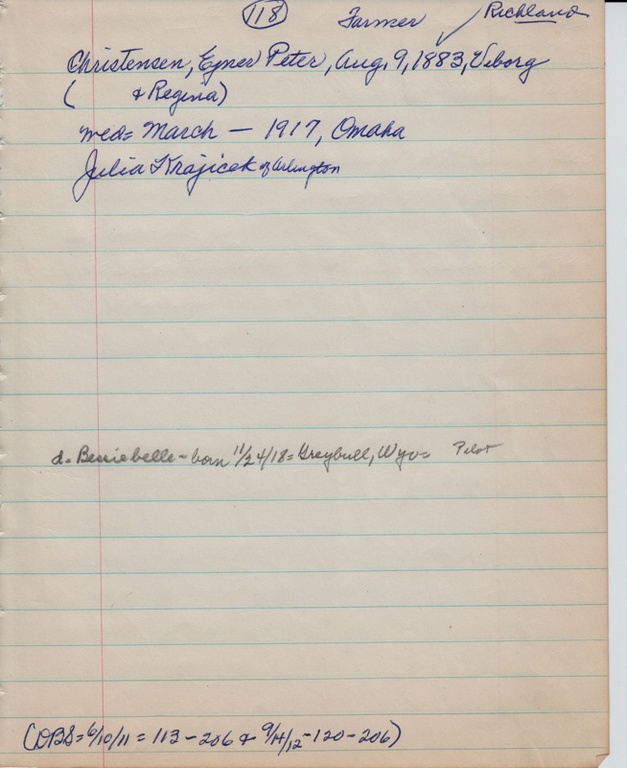 118 Farmer ✓ Richland
Christensen, Eyner Peter, Aug. 9, 1883, Viborg
( & Regina)
med= March — 1917, Omaha
Julia Krajicek of Arlington
d= Bessiebelle - born 11/24/18 = Greybull, Wyo= Pilot
(OBS= 6/10/11 = 113 - 206 & 9/14/12 - 120 - 206)